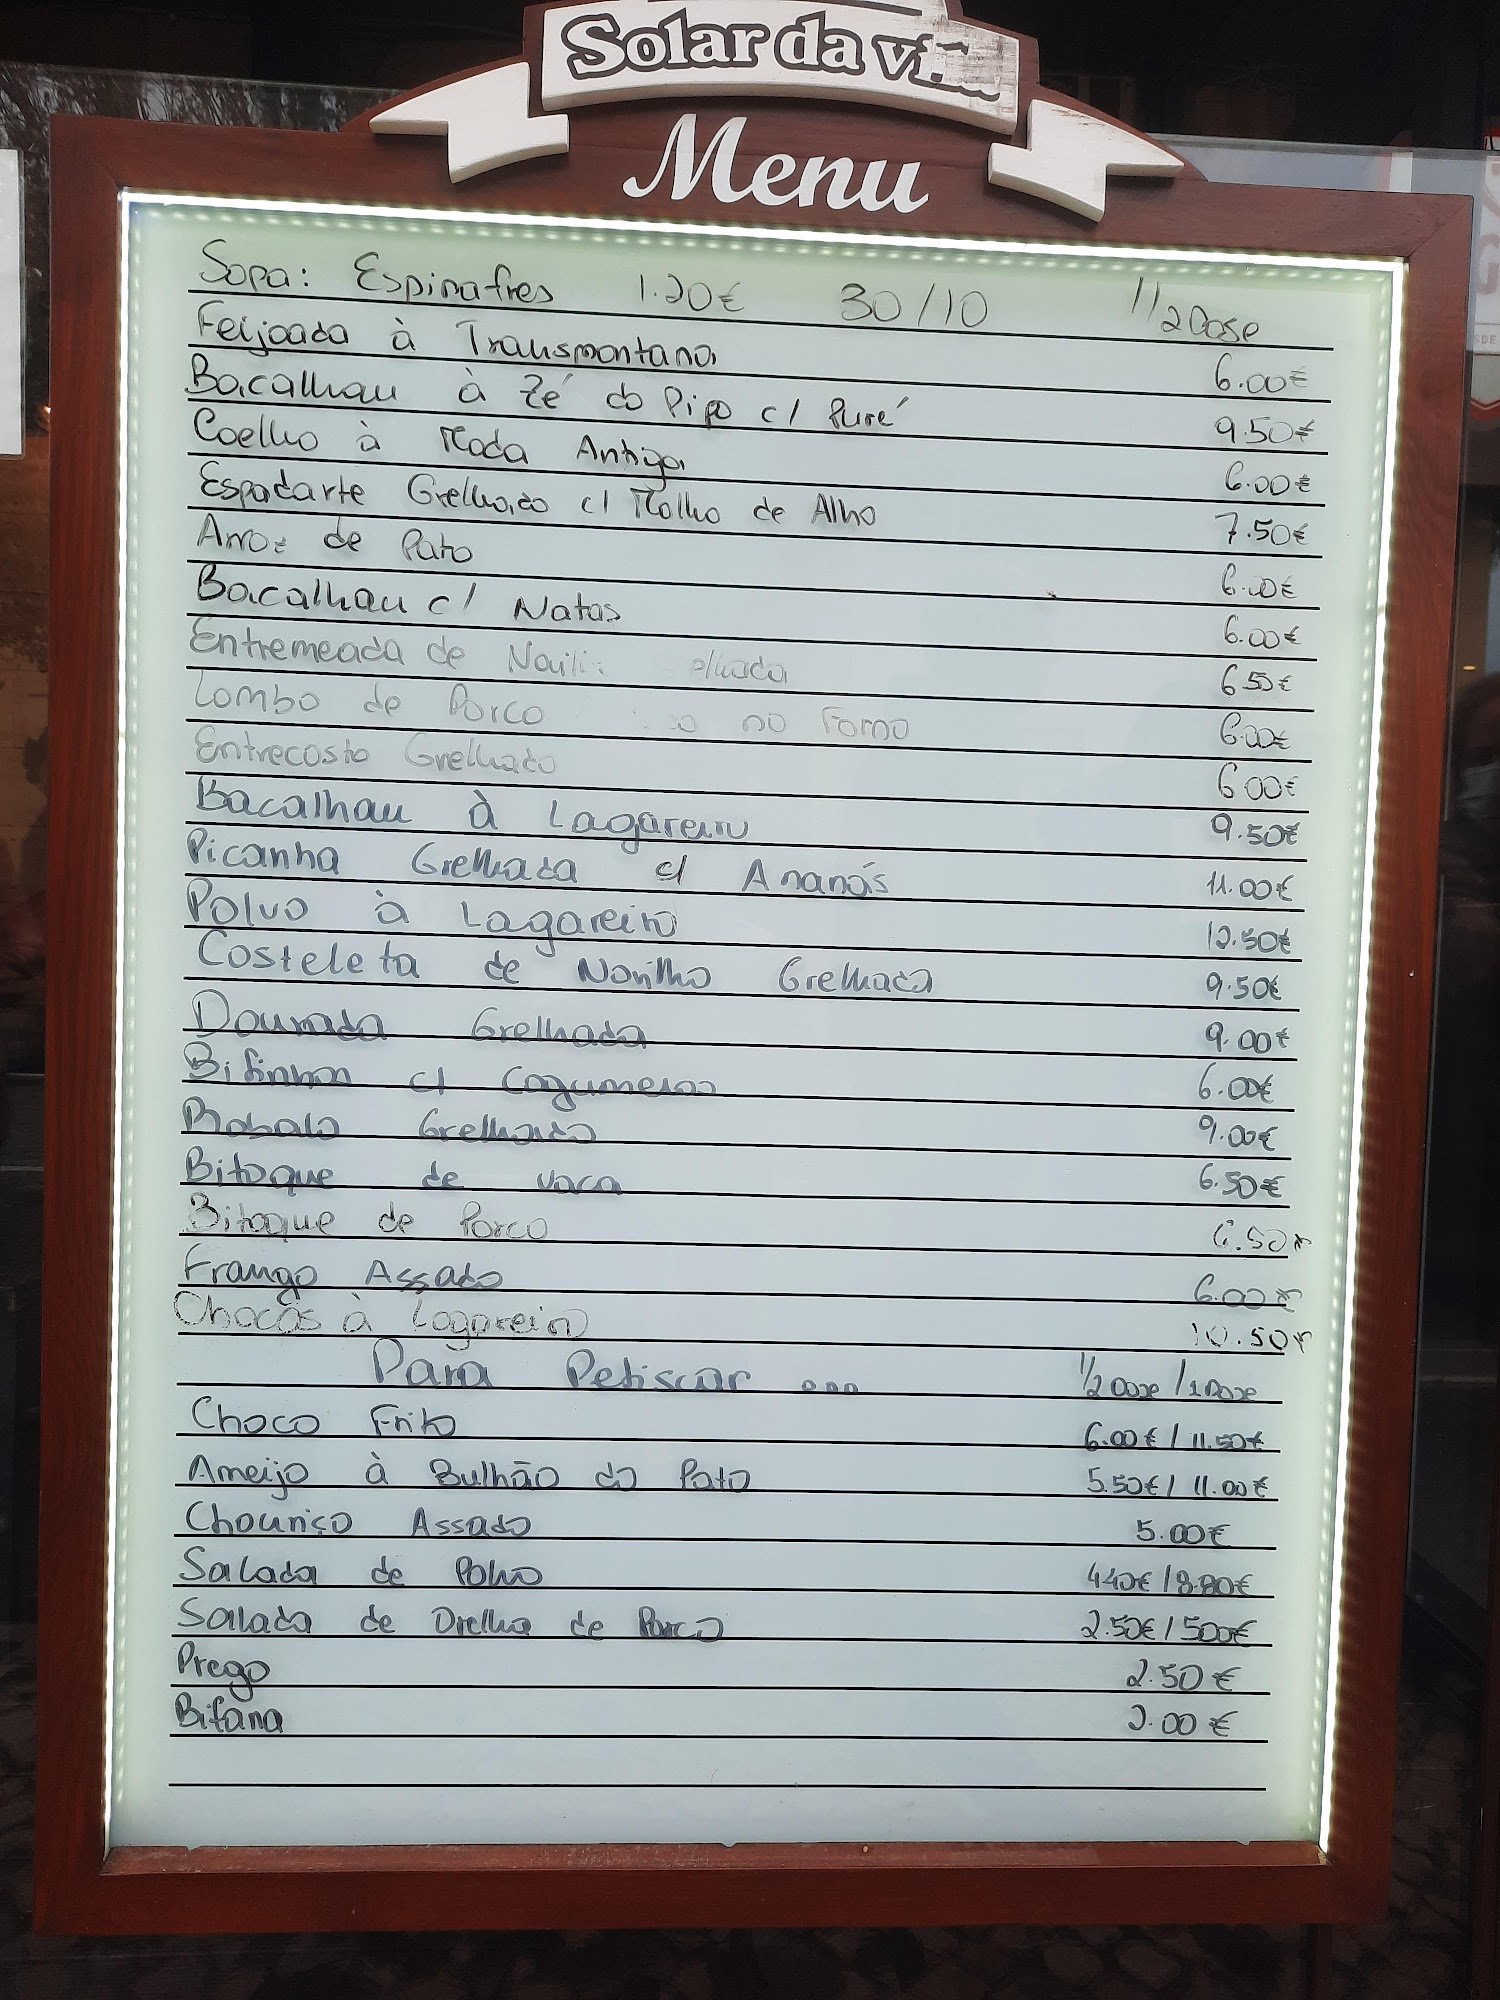 Solar da
Menu
Sopa: Espinafres 1.20€ 30/10 1/2 Dose
Feijoada à Transmontana 6.00€
Bacalhau à Zé do Pipo c/ Puré 9.50€
Coelho à Moda Antiga 6.00€
Espadarte Grelhado c/ Molho de Alho 7.50€
Arroz de Pato 6.00€
Bacalhau c/ Natas 6.00€
Entremeada de 6.50€
Lombo de Porco no Forno 6.00€
Entrecosto Grelhado 6.00€
Bacalhau à Lagareiro 9.50€
Picanha Grelhada c/ Ananás 11.00€
Polvo à Lagareiro 12.50€
Costeleta de Novilho Grelhada 9.50€
Dourada Grelhada 9.00€
Bifinhos c/ Cogumelos 6.00€
Robalo Grelhado 9.00€
Bitoque de vaca 6.50€
Bitoque de Porco 6.50€
Frango Assado 6.00€
Chocos à Lagareiro 10.50€
Para Petiscar ... 1/2 Dose / 1 Dose
Choco Frito 6.00€ / 11.50€
Ameijo à Bulhão do Pato 5.50€ / 11.00€
Chouriço Assado 5.00€
Salada de Polvo 4.40€ / 8.80€
Salada de Orelha de Porco 2.50€ / 5.00€
Prego 2.50€
Bifana 2.00€